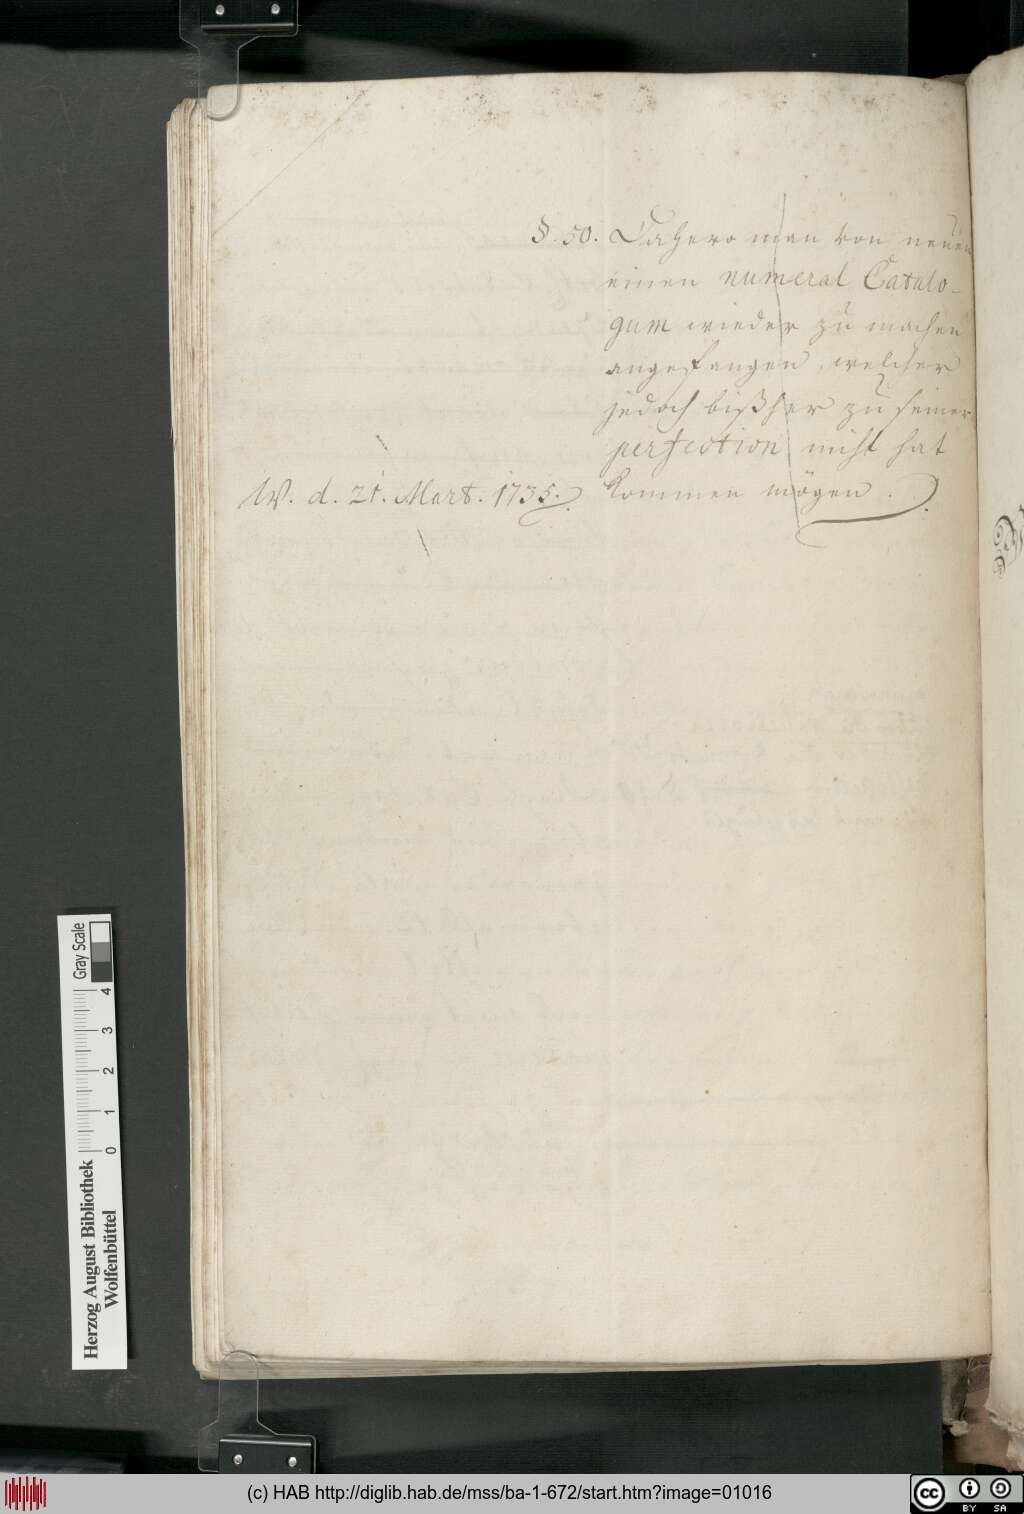 §. 50. Dahero man von neuen
einen numeral Catalo-
gum wieder zu machen
angefangen, welcher
jedoch bißher zu seiner
perfection nicht hat
kommen mögen.
W. d. 21. Mart. 1735.
Gray Scale
0 1 2 3 4
Herzog August Bibliothek
Wolfenbüttel
(c) HAB http://diglib.hab.de/mss/ba-1-672/start.htm?image=01016
cc BY SA